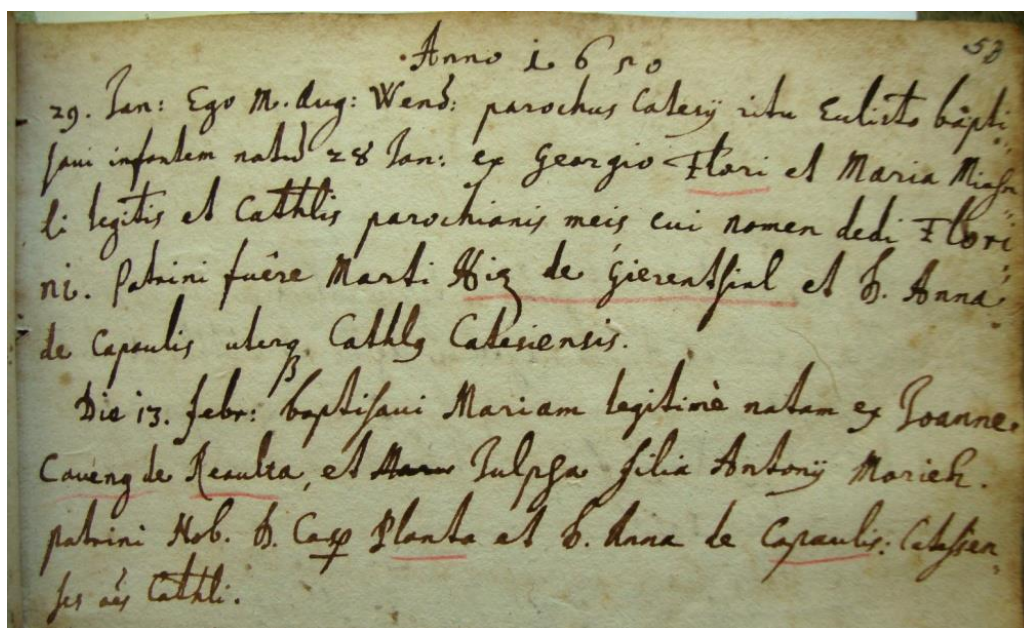 Anno 1650
53
29. Jan: Ego M. Aug: Wend: parochus Catesÿ ritu Eulisto bapti
savi infantem natũ 28 Jan: ex Georgio Flori et Maria
li legitis et Cathlis parochianis meis cui nomen dedi Flori
ni. Patrini fuêre Marti de et D. Anna
de Capaulis uterq Cathlq Catesiensis.
Die 13. febr: baptisavi Mariam legitimè natam ex Joanne
Caveng de Reaulta, et Julpha filia Antonÿ
patrini Nob. D. Casp Planta et D. Anna de Capaulis: Catessen
ses oẽs Cathli.